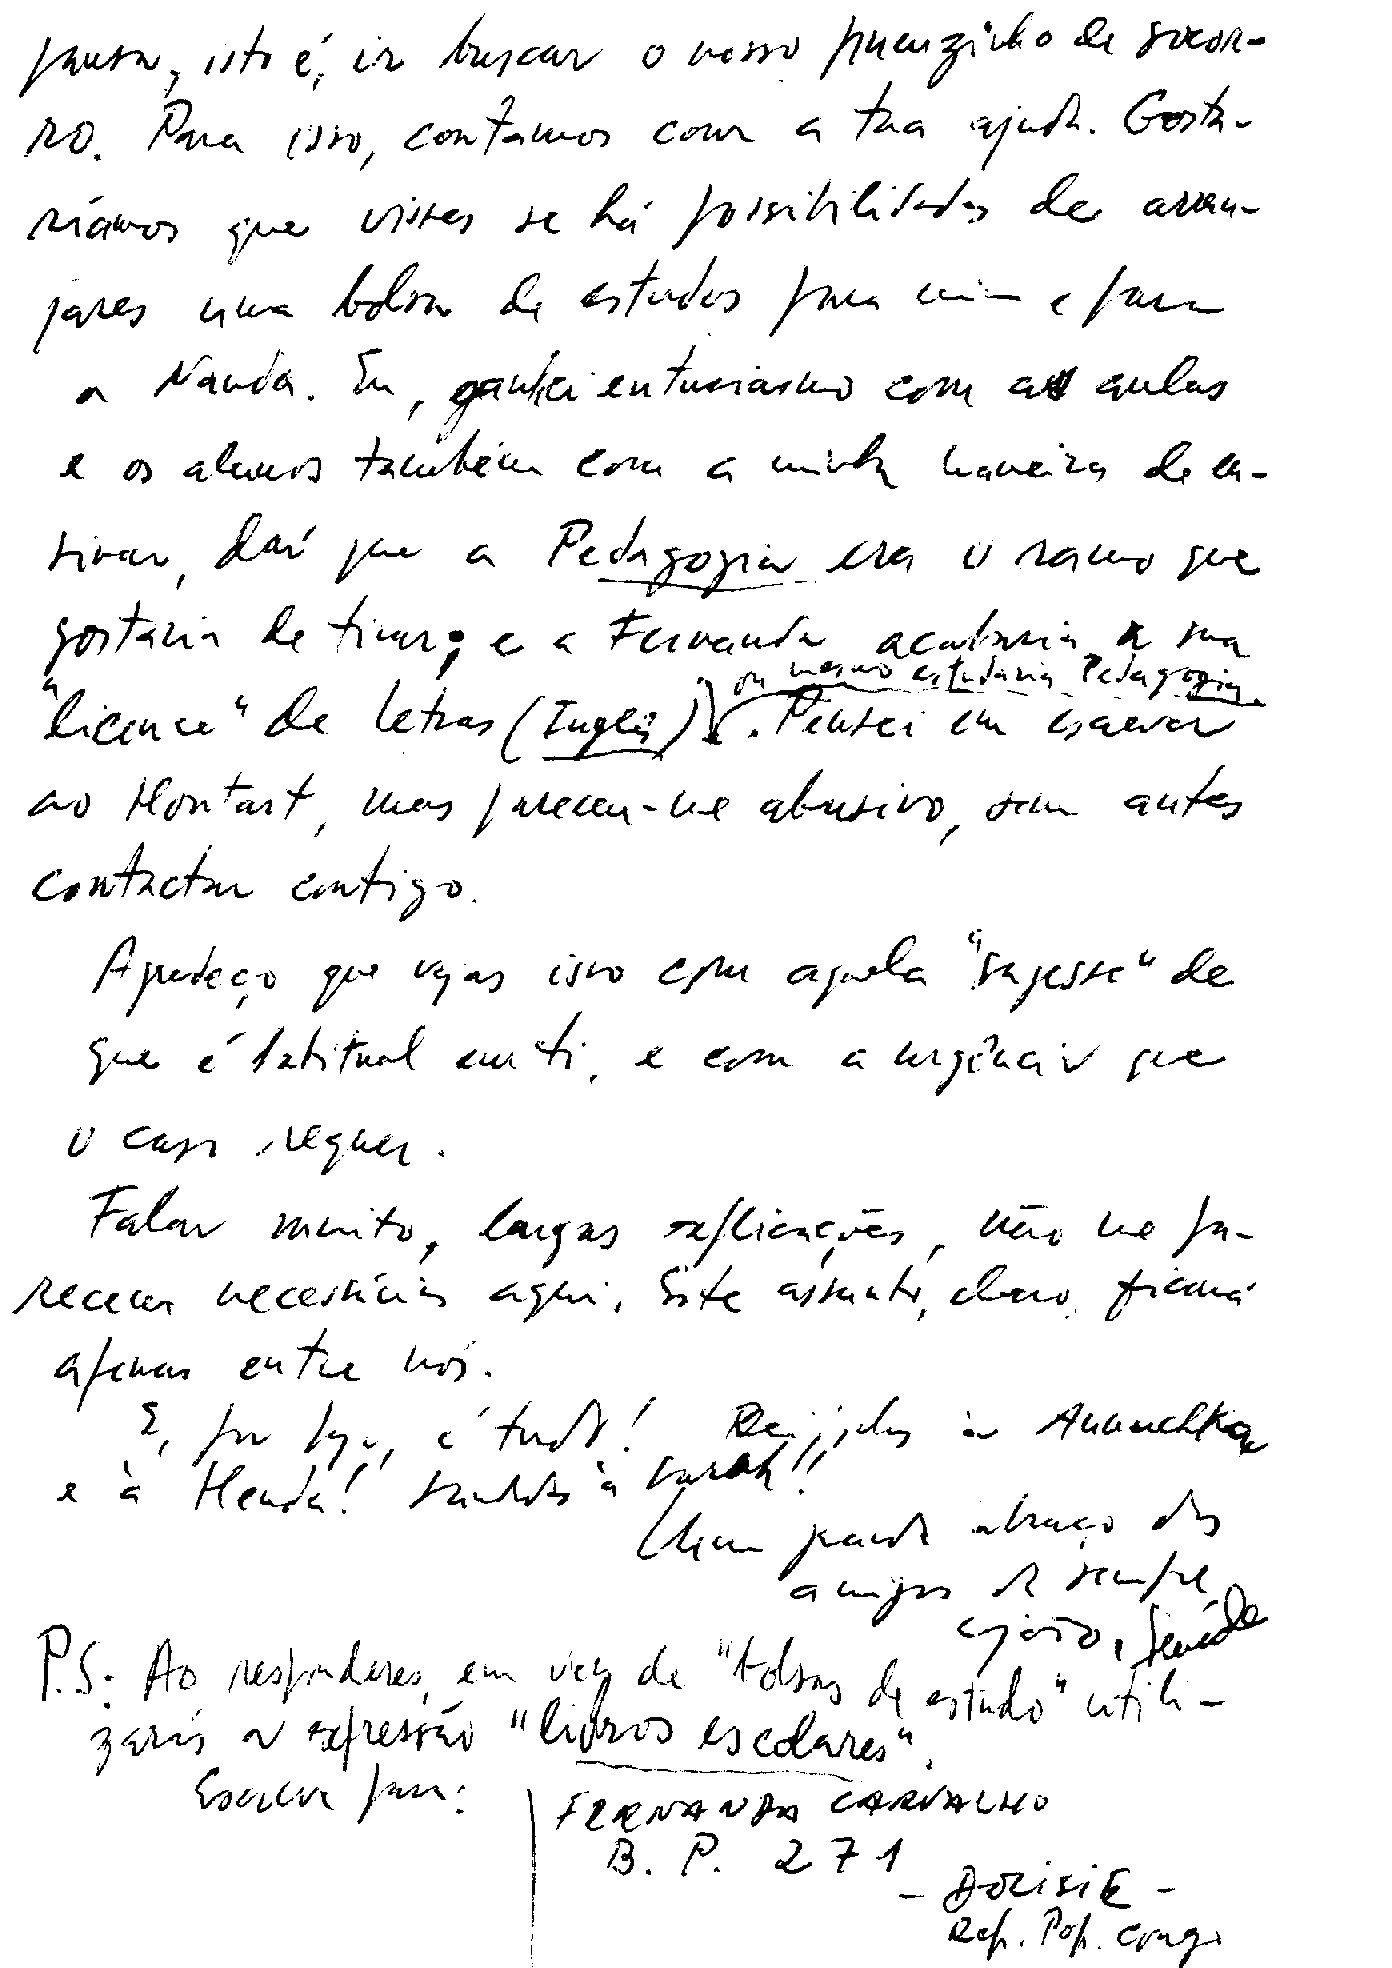 pausa, isto é, ir buscar o nosso pneuzinho de socor-
ro. Para isso, contamos com a tua ajuda. Gosta-
ríamos que visses se há possibilidades de arran-
jares uma bolsa de estudos para mim e para
a Nanda. Eu, ganhei entusiasmo com as aulas
e os alunos também com a minha maneira de en-
sinar, daí que a Pedagogia era o ramo que
gostaria de tirar; e a Fernanda acabaria a sua
ou mesmo estudaria Pedagogia
"licence" de letras (Inglês). Pensei em escrever
ao Montast, mas pareceu-me abusivo, sem antes
contactar contigo.
Agradeço que vejas isso com aquela "sagesse" de
que é habitual em ti, e com a urgência que
o caso requer.
Falar muito, largas explicações, não me pa-
recem necessárias aqui. Este assunto, claro, ficará
apenas entre nós.
E, por hoje, é tudo! Beijolas à Anouchka
e à Henda! Saudades à Sarah!!
Um grande abraço dos
amigos de sempre
P.S: Ao responderes, em vez de "bolsas de estudo" utili-
zarás a expressão "livros escolares".
Escreve para:
FERNANDA CARVALHO
B. P. 271
- DOLISIE -
Rep. Pop. Congo